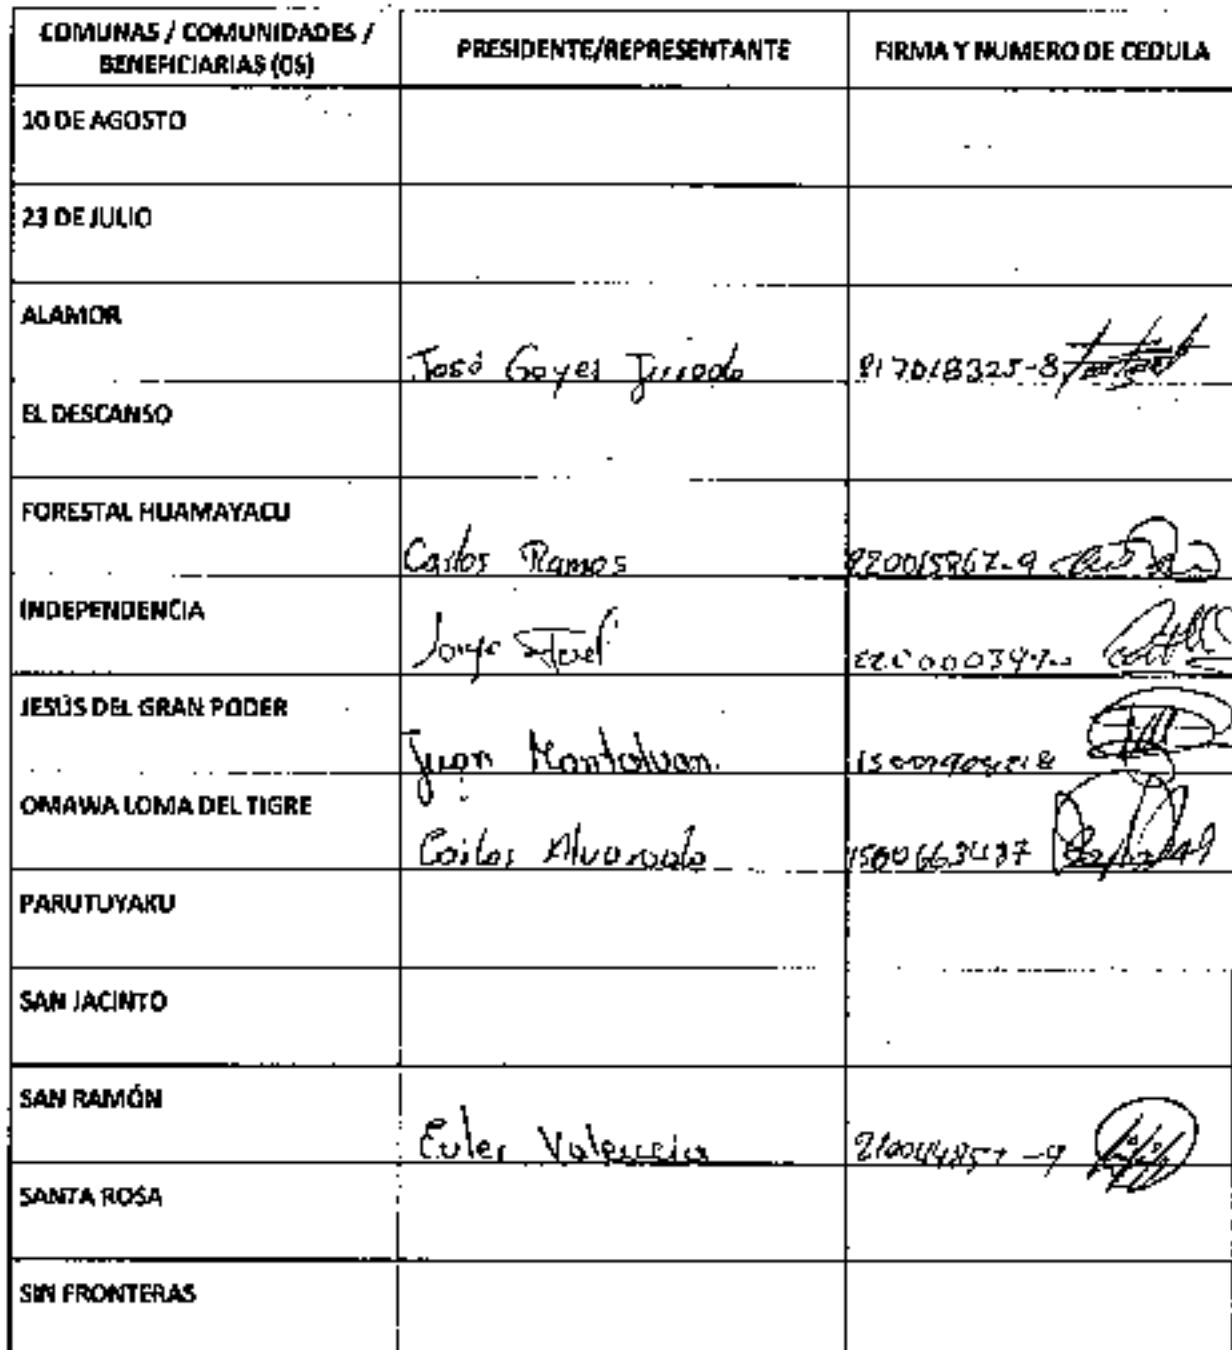 COMUNAS / COMUNIDADES /
BENEFICIARIAS (OS)
PRESIDENTE/REPRESENTANTE
FIRMA Y NUMERO DE CEDULA
10 DE AGOSTO
23 DE JULIO
ALAMOR
José Goyes Jurado
EL DESCANSO
FORESTAL HUAMAYACU
Carlos Ramos
INDEPENDENCIA
Jorge
JESÚS DEL GRAN PODER
Juan Montalvan.
OMAWA LOMA DEL TIGRE
Carlos Alvarado
PARUTUYAKU
SAN JACINTO
SAN RAMÓN
Euler Valencia
SANTA ROSA
SIN FRONTERAS